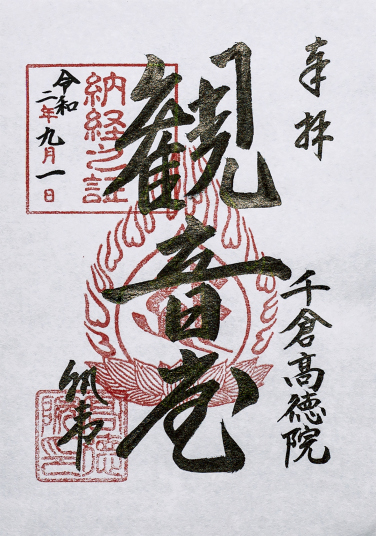 奉拝
千倉高徳院
観音堂
納経之証
令和
二年九月一日
高徳
院印